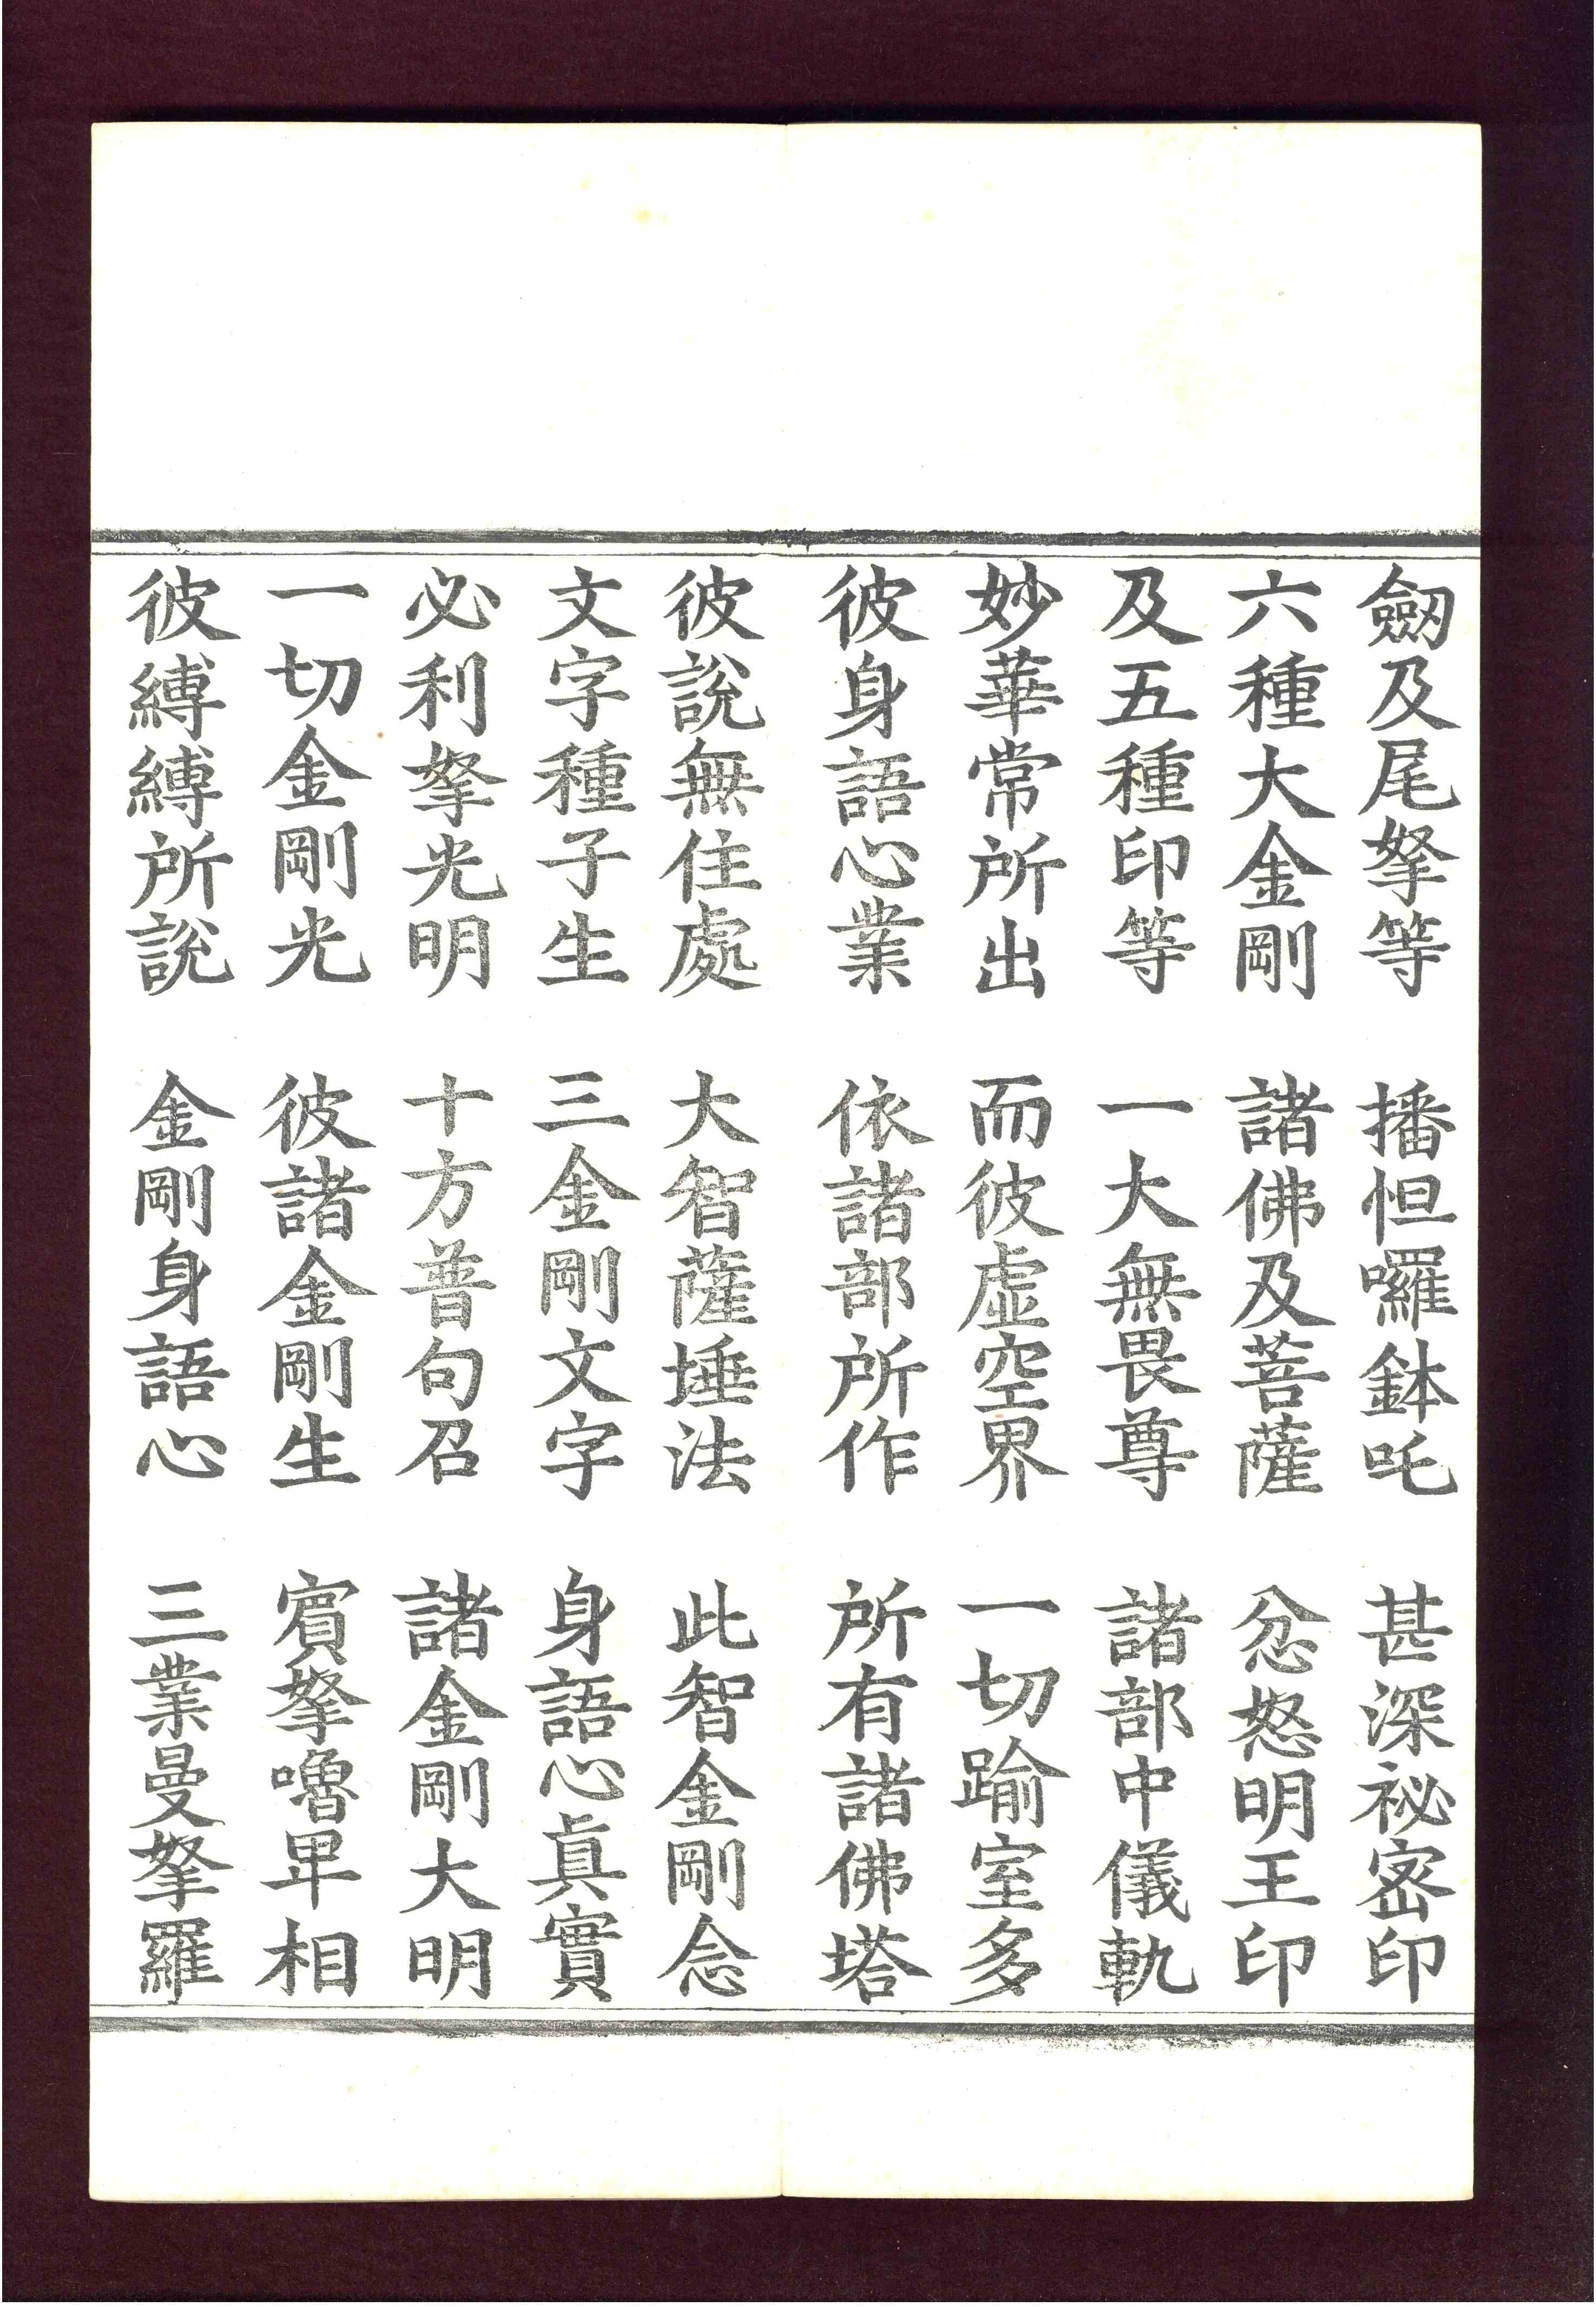 劔及尾拏等　播怛囉鉢吒　甚深祕密印
六種大金剛　諸佛及菩薩　忿怒明王印
及五種印等　一大無畏尊　諸部中儀軌
妙華常所出　而彼虛空界　一切踰室多
彼身語心業　依諸部所作　所有諸佛塔
彼說無住處　大智薩埵法　此智金剛念
文字種子生　三金剛文字　身語心眞實
必利拏光明　十方普句召　諸金剛大明
一切金剛光　彼諸金剛生　賔拏嚕卑相
彼縛縛所說　金剛身語心　三業曼拏羅